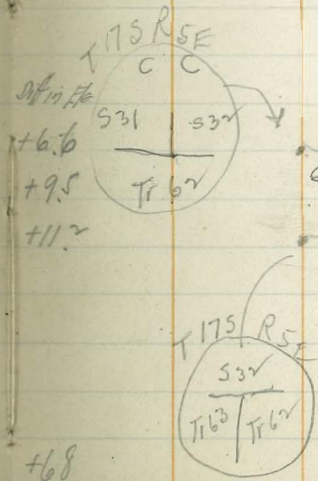 T17S R5E
C C
S31 S32
+6.6
+9.5
Tr 62
+11.2
6
T17S R5E
S32
Tr63 Tr62
+68